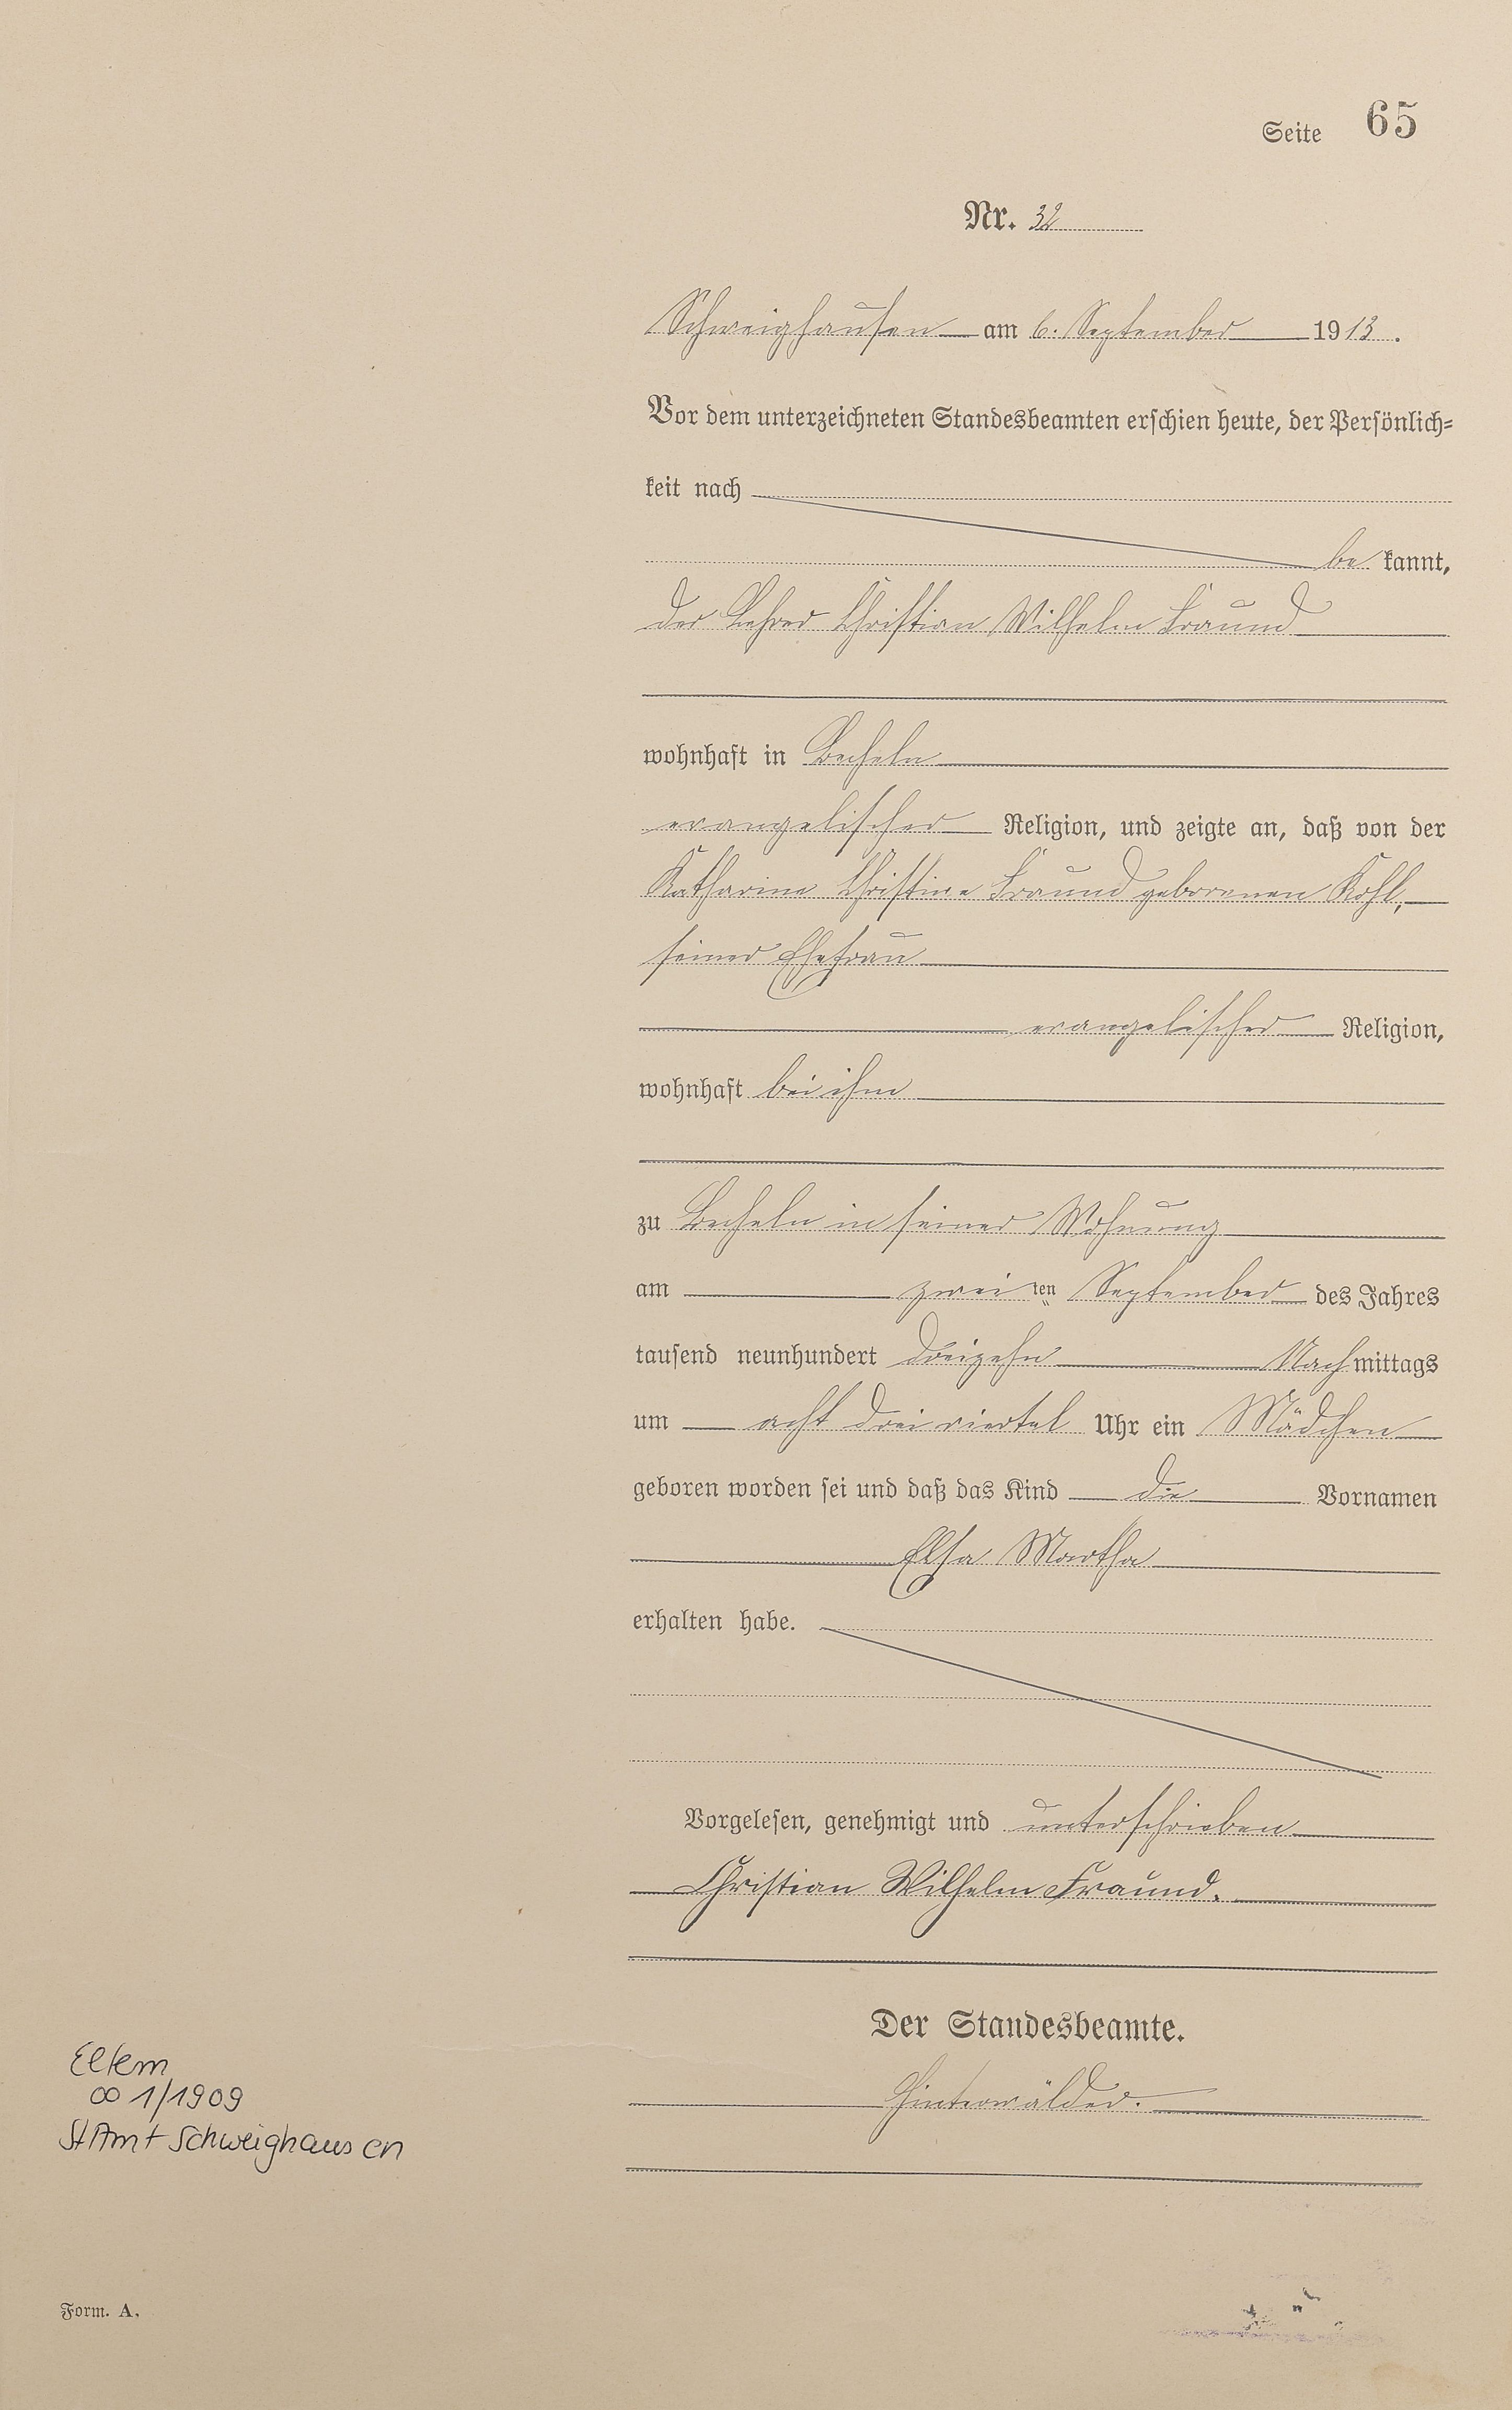 Seite 65
Nr. 32
Schweighausen am 6. September 1913.
Vor dem unterzeichneten Standesbeamten erschien heute, der Persönlich=
keit nach
be kannt,
der Lehrer Christian Wilhelm Fraund
wohnhaft in Becheln
evangelischer Religion, und zeigte an, daß von der
Katharine Christine Fraund geborenen Kohl,
seiner Ehefrau
evangelischer Religion,
wohnhaft bei ihm
zu Becheln in seiner Wohnung
am zwei ten September des Jahres
tausend neunhundert dreizehn Nach mittags
um acht drei viertel Uhr ein Mädchen
geboren worden sei und daß das Kind die Vornamen
Elsa Martha
erhalten habe.
Vorgelesen, genehmigt und unterschrieben
Christian Wilhelm Fraund.
Der Standesbeamte.
Hinterwälder.
Eltern
∞ 1/1909
StAmt Schweighausen
Form. A.